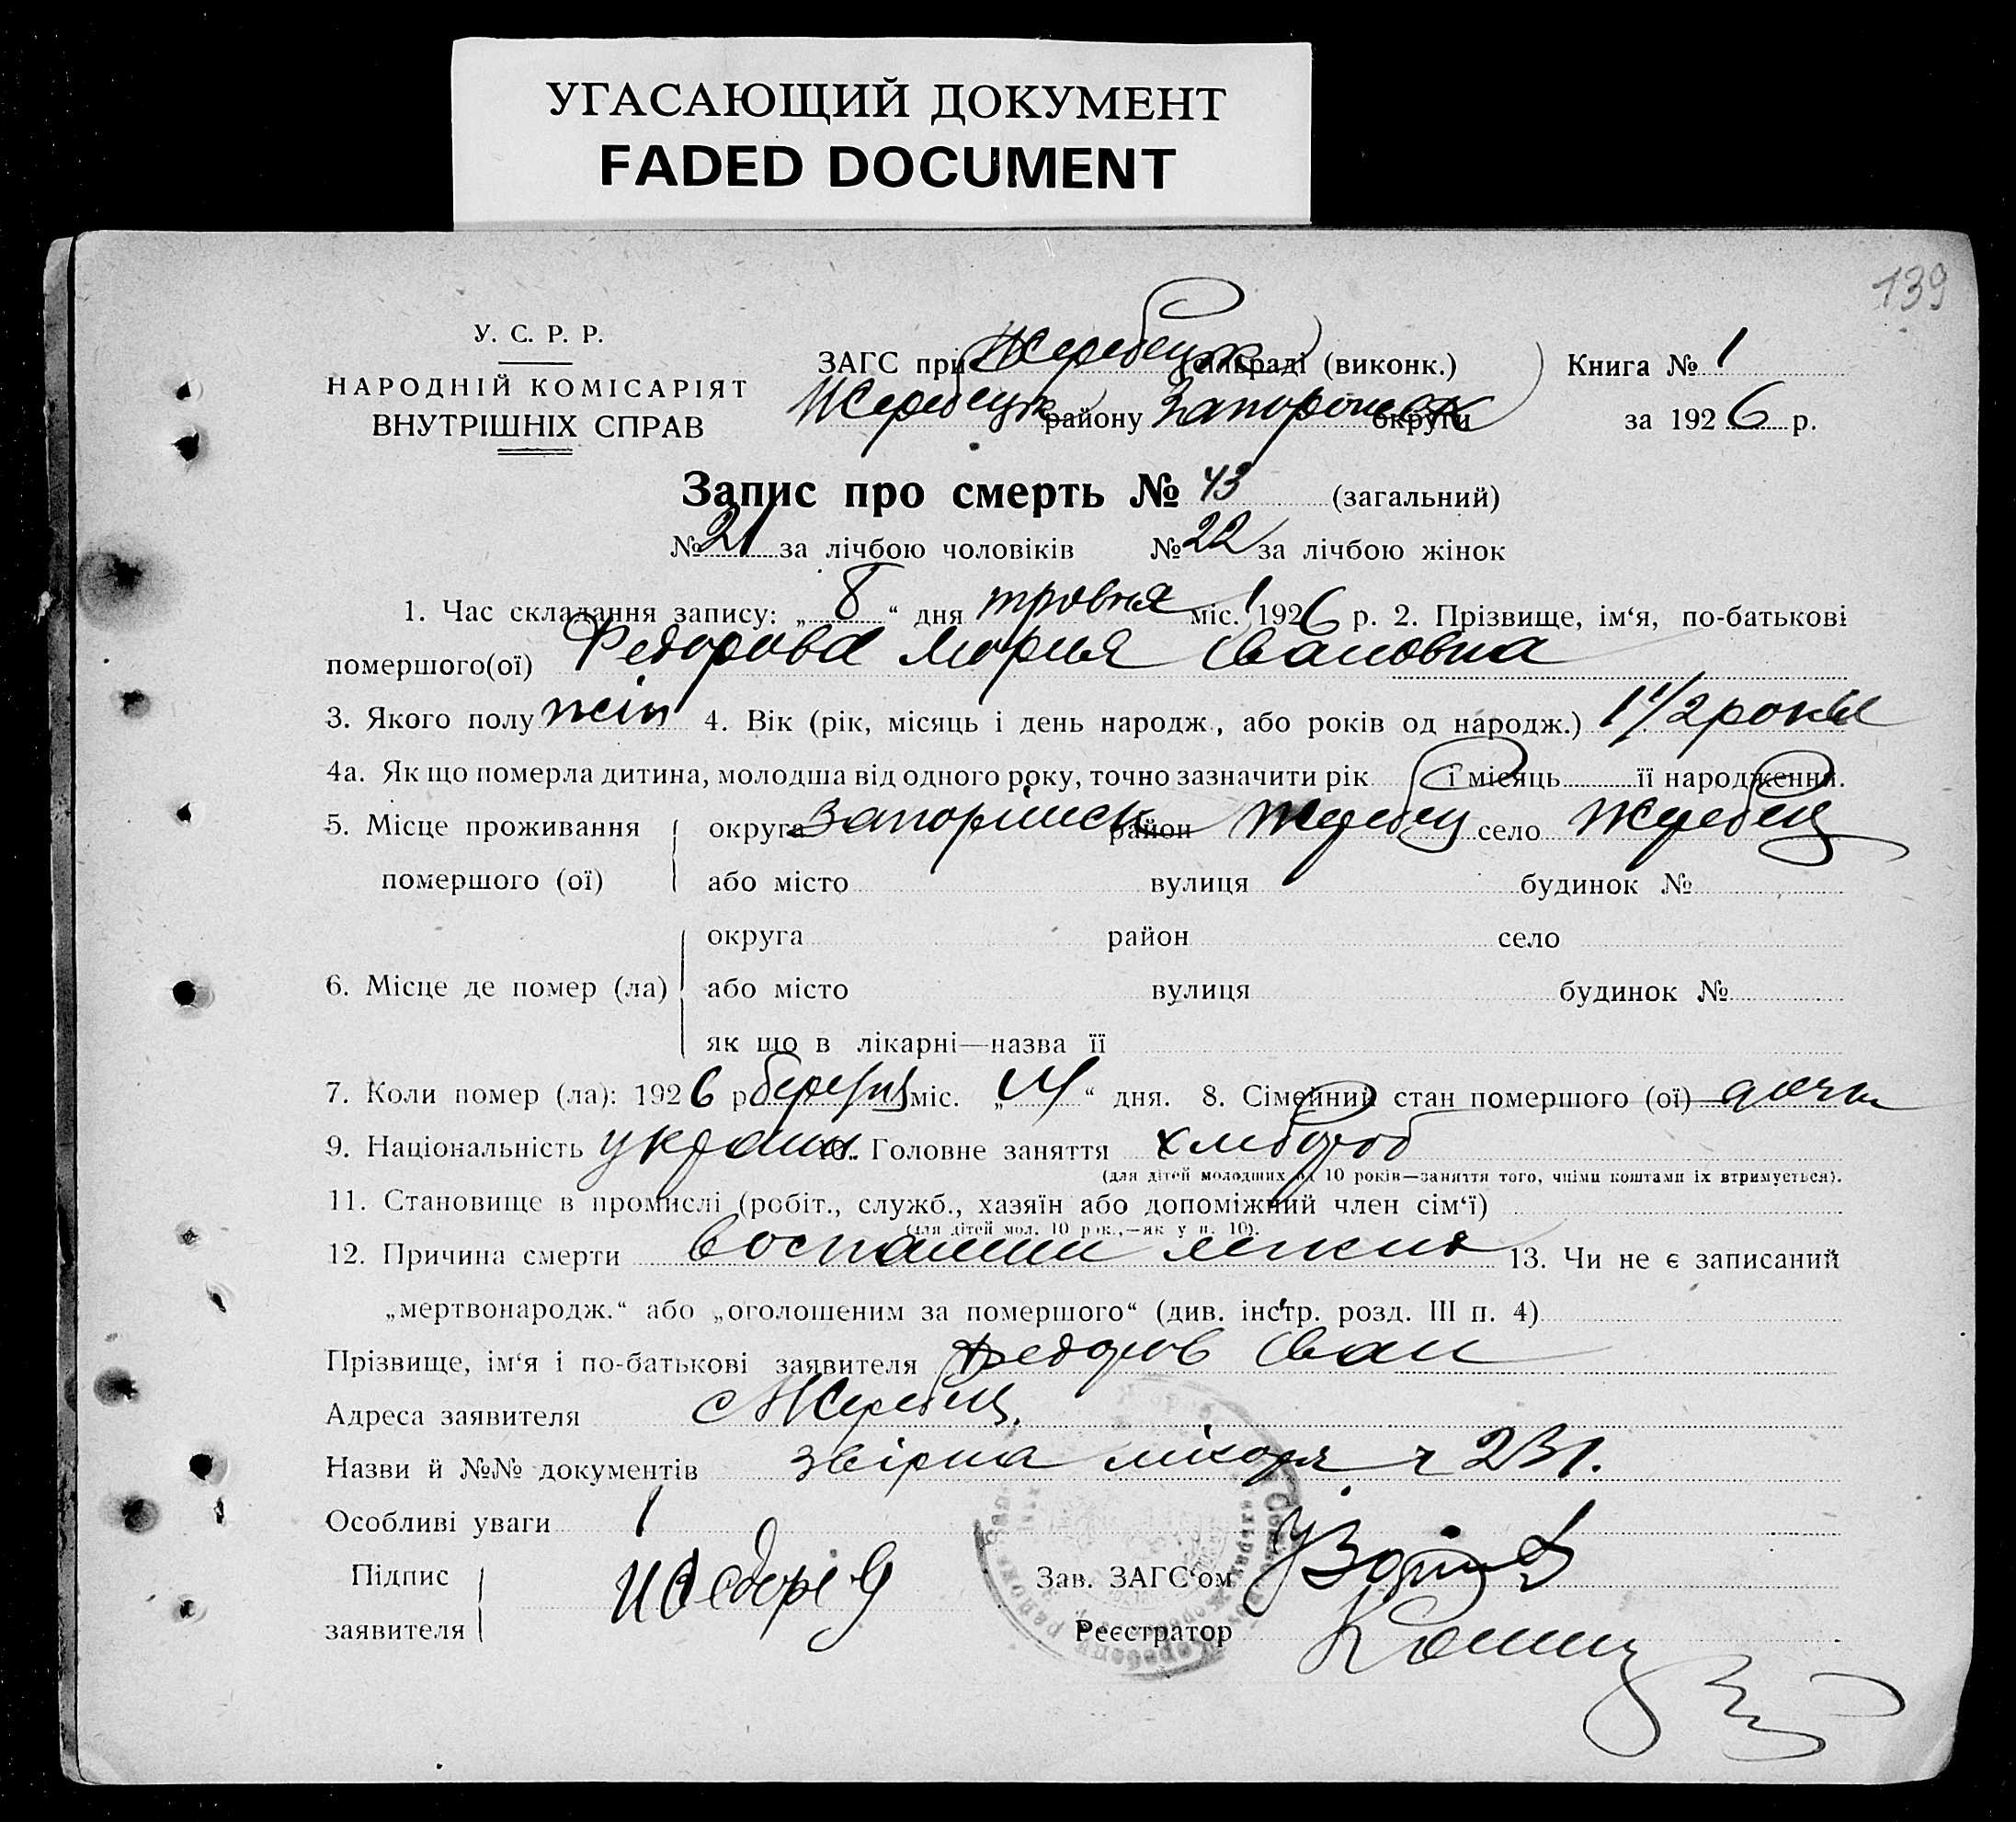 УГАСАЮЩИЙ ДОКУМЕНТ
FADED DOCUMENT
139
У. С. Р. Р.
НАРОДНІЙ КОМІСАРІЯТ
ВНУТРІШНІХ СПРАВ
ЗАГС при Жеребецьк сільраді (виконк.)
Жеребецьк району Запоріжск округи
Книга № 1
за 1926 р.
Запис про смерть № 43 (загальний)
№ 21 за лічбою чоловіків № 22 за лічбою жінок
1. Час складання запису: „ 8 “ дня травня міс. 1926 р. 2. Прізвище, ім‘я, по-батькові
помершого(ої) Федорова Мария Ивановна
3. Якого полу жін 4. Вік (рік, місяць і день народж., або років од народж.) 1 1/2 роки
4а. Як що померла дитина, молодша від одного року, точно зазначити рік і місяць її народження.
5. Місце проживання округа Запоріжск район Жеребец село Жеребец
помершого (ої) або місто вулиця будинок №
округа район село
6. Місце де помер (ла) або місто вулиця будинок №
як що в лікарні—назва її
7. Коли помер (ла): 1926 р. міс. „ “ дня. 8. Сімейний стан помершого (ої) дочка
9. Національність україн. 10. Головне заняття хлібороб
(для дітей молодших од 10 років—заняття того, чиїми коштами їх втримується).
11. Становище в промислі (робіт., служб., хазяїн або допоміжний член сім‘ї)
(для дітей мол. 10 рок.,—як у п. 10).
12. Причина смерти воспалени легких 13. Чи не є записаний
„мертвонародж.“ або „оголошеним за помершого“ (див. інстр. розд. III п. 4)
Прізвище, ім‘я і по-батькові заявителя Федоров Иван
Адреса заявителя с Жеребец.
Назви й №№ документів звірка 231.
Особливі уваги
Підпис
заявителя
Зав. ЗАГС‘ом
Реєстратор